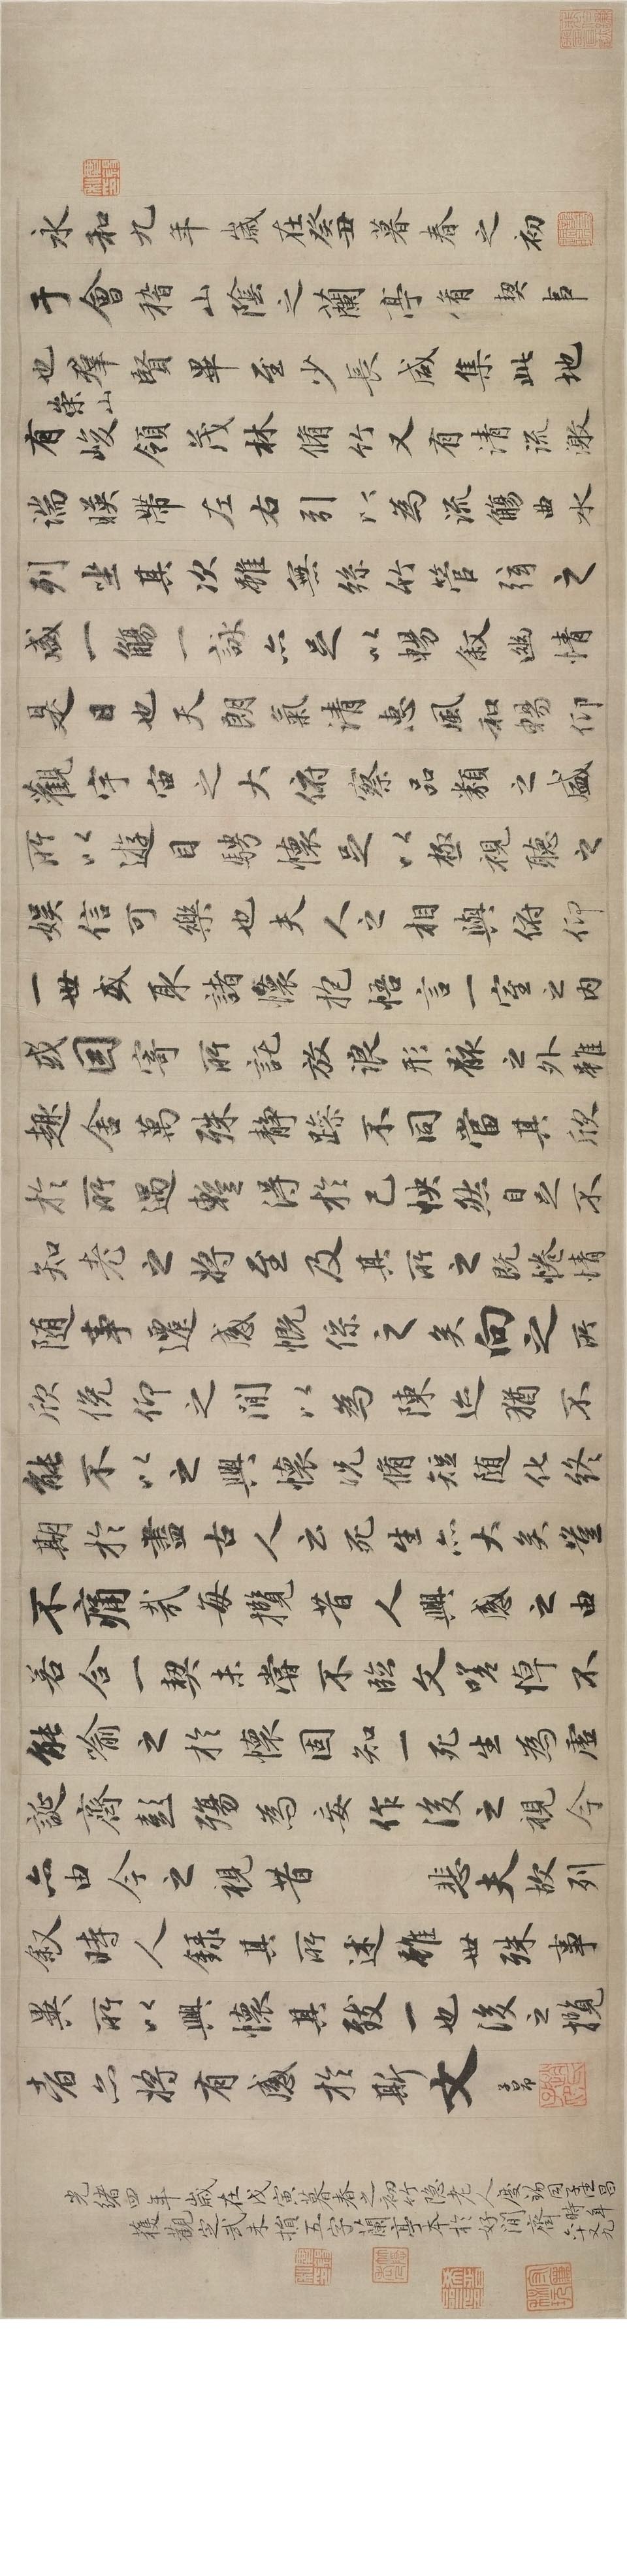 永和九年歲在癸丑暮春之初
于會稽山陰之蘭亭脩禊事
也羣賢畢至少長咸集此地
有崇山峻領茂林脩竹又有清流激
湍暎帶左右引以為流觴曲水
列坐其次雖無絲竹管弦之
盛一觴一詠亦足以暢敘幽情
是日也天朗氣清惠風和暢仰
觀宇宙之大俯察品類之盛
所以遊目騁懷足以極視聽之
娛信可樂也夫人之相與俯仰
一世或取諸懷抱悟言一室之內
或因寄所託放浪形骸之外雖
趣舍萬殊靜躁不同當其欣
於所遇暫得於己怏然自足不
知老之將至及其所之既惓情
隨事遷感慨係之矣向之所
欣俛仰之間以為陳迹猶不
能不以之興懷況脩短隨化終
期於盡古人云死生亦大矣豈
不痛哉每攬昔人興感之由
若合一契未嘗不臨文嗟悼不
能喻之於懷固知一死生為虛
誕齊彭殤為妄作後之視今
亦由今之視昔 悲夫故列
敘時人錄其所述雖世殊事
異所以興懷其致一也後之攬
者亦將有感於斯文
子昂
光緒四年歲在戊寅暮春之初竹隱老人慶錫同子
獲觀定武未損五字蘭亭本於好閒齋時年六十又九